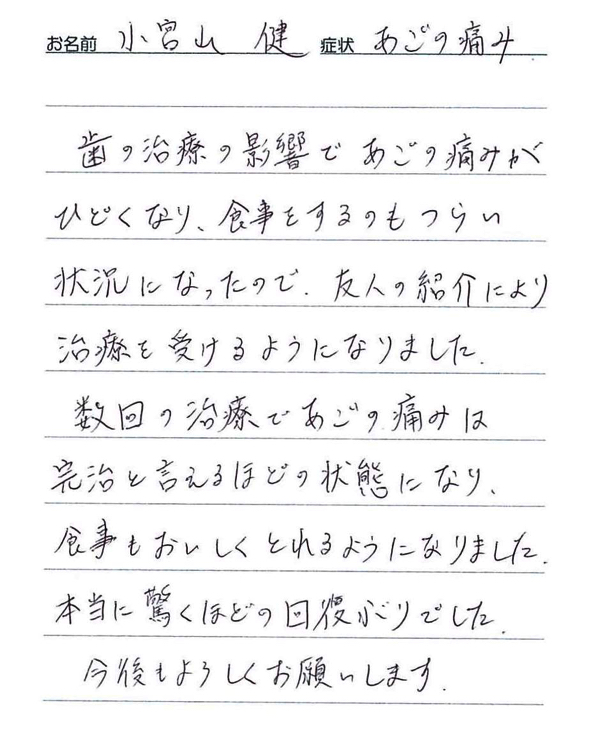 お名前 小宮山 健 症状 あごの痛み
歯の治療の影響で あごの痛みが
ひどくなり、食事をするのもつらい
状況になったので、友人の紹介により
治療を受けるようになりました。
数回の治療であごの痛みは
完治と言えるほどの状態になり、
食事もおいしくとれるようになりました。
本当に驚くほどの回復ぶりでした。
今後もよろしくお願いします。